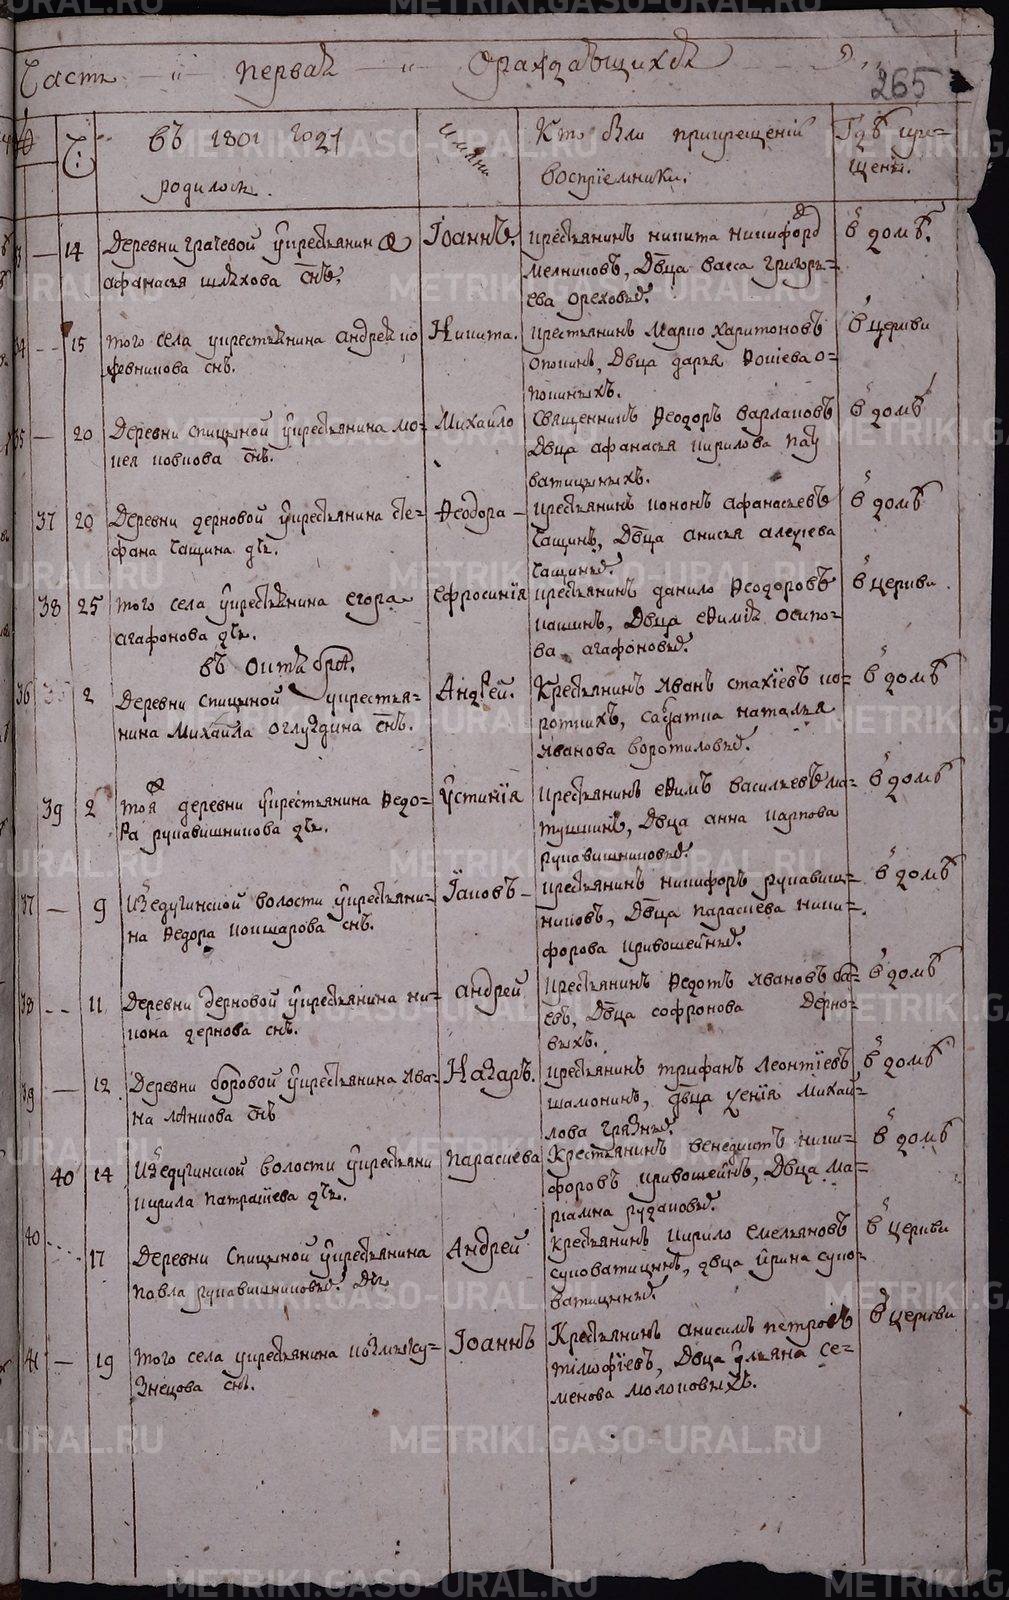 Часть первая о раждающихся
265
Въ 1801 году родилось.
Имяна
Кто были при крещенiи
воспрiемники.
Гдѣ кре-
щены.
14 Деревни грачевой у крестьянина
афанасья шляхова снъ.
Iоаннъ.
крестьянинъ никита никифоровъ
мелниковъ, Двца васса григорь-
ева ореховыхъ.
в домѣ.
34 15 того села у крестьянина андрея ко
жевникова снъ.
Никита.
крестьянинъ Марко харитоновъ
опокинъ, Двца дарья о-
покиныхъ.
в церкви
35 20 Деревни спицыной у крестьянина мо-
кея ковкова снъ.
Михайло
Священникъ Ѳеодоръ варлаковъ
Двца афанасья кирилова
ватицыныхъ.
в домѣ
37 20 Деревни дерновой у крестьянина сте-
фана Чащина дчь.
Ѳеодора
крестьянинъ кононъ афанасьевъ
Чащинъ, Двца анисья алексiева
Чащиныхъ
в домѣ
38 25 того села у крестьянина егора
агафонова дчь.
ефросинiя
крестьянинъ данило Ѳеодоровъ
кашинъ, Двца евдимiя осипо-
ва агафоновыхъ.
в церкви.
въ октябрѣ.
36 2 Деревни спицыной у крестья-
нина Михаила оглуздина снъ.
Андрей.
Крестьянинъ иванъ стахiевъ ко-
роткихъ, наталья
иванова воротиловыхъ.
в домѣ
39 2 тоя деревни у крестьянина Ѳедо-
ра рукавишникова дчь.
Устинiя
крестьянинъ ефимъ васильевъ ма-
тушкинъ, Двца анна карпова
рукавишниковыхъ.
в домѣ
37 9 Издугинской волости у крестьяни-
на Ѳедора кокшарова снъ.
Iаковъ
крестьянинъ никифоръ рукавиш-
никовъ, Двца параскева ники-
форова кривошейныхъ.
в домѣ
38 11 Деревни дерновой у крестьянина ни-
кона дернова снъ.
андрей
крестьянинъ Ѳедотъ ивановъ ба-
евъ, Двца софронова дерно-
выхъ.
в домѣ
39 12 Деревни боровой у крестьянина ива-
на ланкова снъ
Назаръ.
крестьянинъ трифанъ леонтiевъ
шамонинъ, двца ксенiя михай-
лова грязныхъ.
в домѣ
40 14 Издугинской волости у крестьяни
кирила патракѣева дчь.
параскева
Крестьянинъ венедиктъ ники-
форовъ кривошейнъ, Двца ма-
рiамна рузановыхъ.
в домѣ
40 17 Деревни спицыной у крестьянина
павла рукавишниковыхъ.
Андрей
крестьянинъ кирило емельяновъ
суковатицынъ, двца ирина суко-
ватицыныхъ
в церкви
41 19 того села у крестьянина козмы ку-
знецова снъ.
Iоаннъ
Крестьянинъ анисимъ петровъ
тимофiевъ, Двца ульяна се-
менова молоковыхъ.
в церкви
METRIKI.GASO-URAL.RU